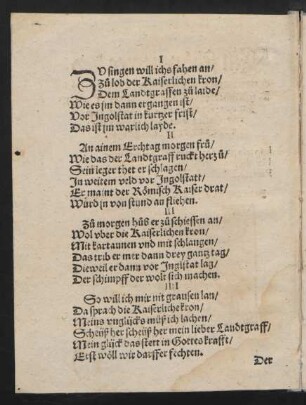 I
ZV singen will ichs fahen an/
Zů lob der Kaiserlichen kron/
Dem Landtgraffen zů laide/
Wie es jm dann ergangen ist/
Vor Ingolstat in kurtzer frist/
Das ist jm warlich layde.
II
An ainem Erchtag morgen frů/
Wie das der Landtgraff ruckt herzů/
Sein leger thet er schlagen/
In weitem veld vor Ingolstatt/
Er maint der Römisch Kaiser drat/
Würd jn von stund an fliehen.
III
Zů morgen hůb er zů schiessen an/
Wol vber die Kaiserlichen kron/
Mit kartaunen vnd mit schlangen/
Das trib er mer dann drey gantz tag/
Dieweil er dann vor Inglstat lag/
Der schimpff der wolt sich machen.
IIII
So will ich mir nit grausen lan/
Da sprach die Kaiserliche kron/
Meins vnglücks můß ich lachen/
Scheüß her scheüß her mein lieber Landtgraff/
Mein glück das stett in Gottes krafft/
Erst wöll wir dapffer fechten.
Der